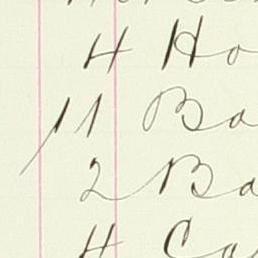 4 Ho
11 Ba
2 Ba
4 Ca